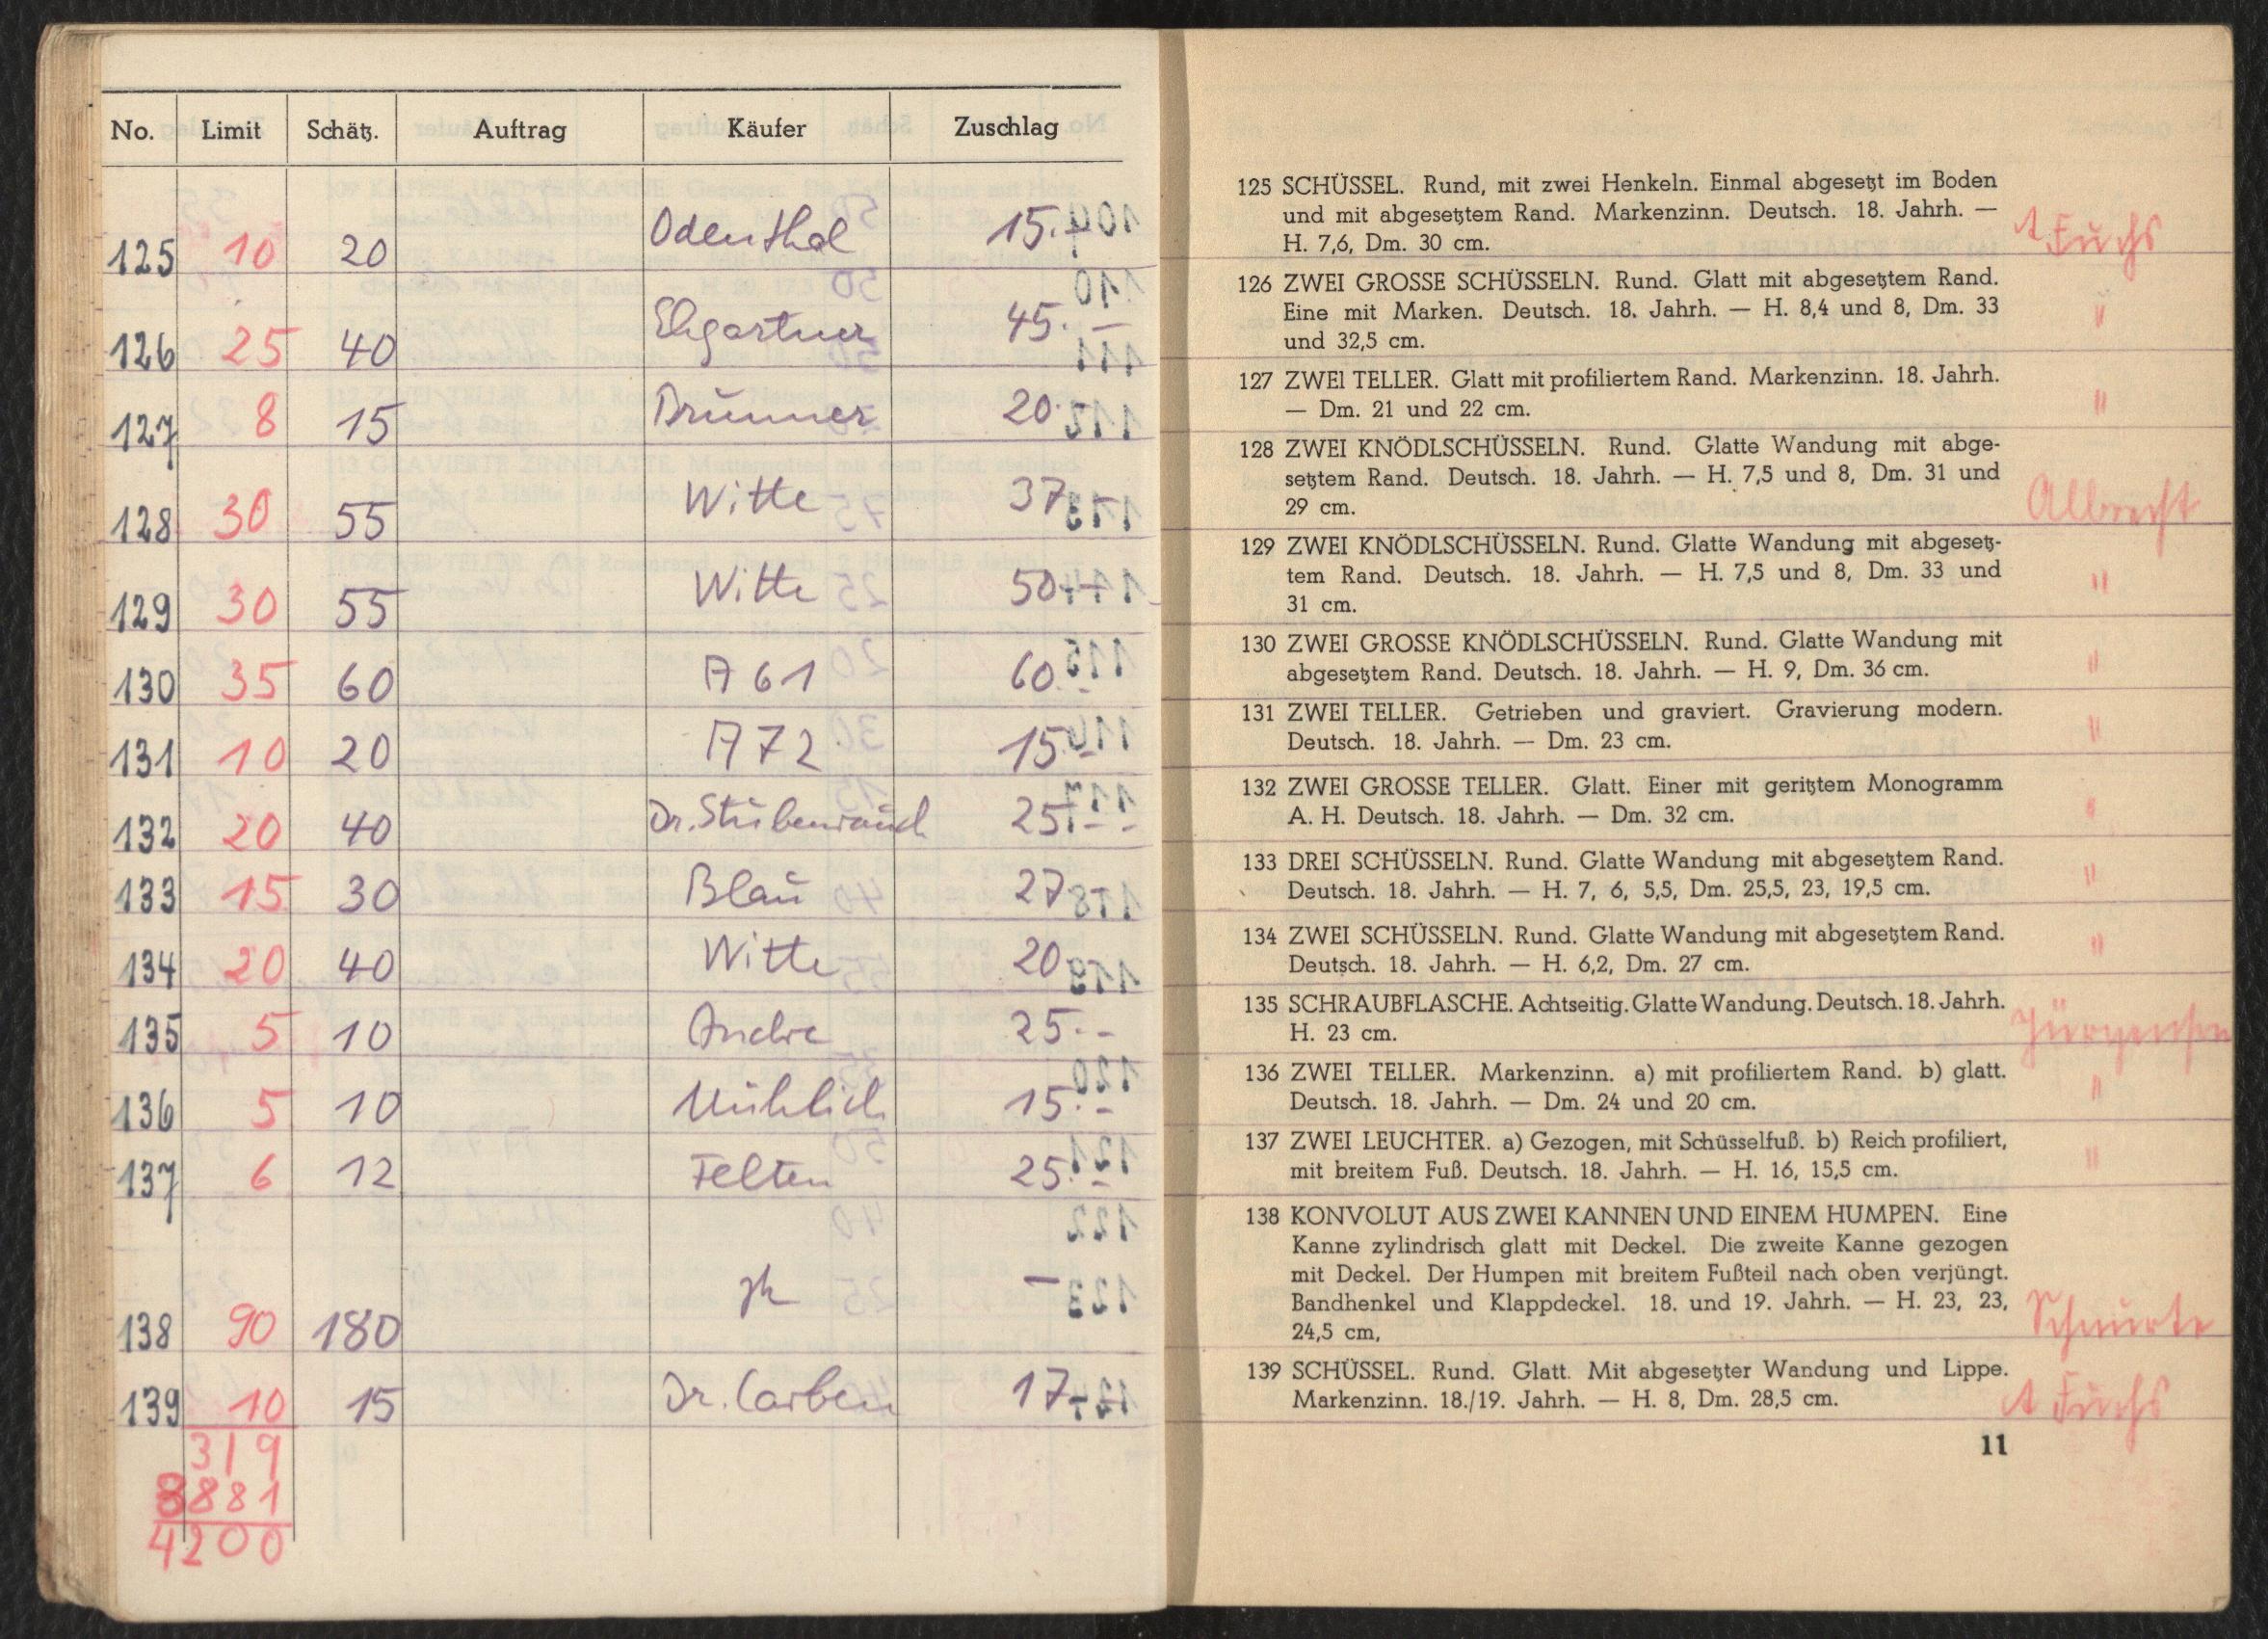 No. Limit Schätz. Auftrag Käufer Zuschlag
125 10 20 Odenthal 15.-
126 25 40 Ehgartner 45.-
127 8 15 Brunner 20.-
128 30 55 Witte 37.-
129 30 55 Witte 50.-
130 35 60 A 61 60.-
131 10 20 A 72 15.-
132 20 40 Dr. Stubenrauch 25.-
133 15 30 Blau 27.-
134 20 40 Witte 20.-
135 5 10 Andre 25.-
136 5 10 Mühlich 15.-
137 6 12 Felten 25.-
138 90 180 zk —
139 10 15 Dr. Carben 17.-
319
3881
4200
125 SCHÜSSEL. Rund, mit zwei Henkeln. Einmal abgesetzt im Boden
und mit abgesetztem Rand. Markenzinn. Deutsch. 18. Jahrh. —
H. 7,6, Dm. 30 cm. Fuchs
126 ZWEI GROSSE SCHÜSSELN. Rund. Glatt mit abgesetztem Rand.
Eine mit Marken. Deutsch. 18. Jahrh. — H. 8,4 und 8, Dm. 33 "
und 32,5 cm.
127 ZWEI TELLER. Glatt mit profiliertem Rand. Markenzinn. 18. Jahrh.
— Dm. 21 und 22 cm. "
128 ZWEI KNÖDLSCHÜSSELN. Rund. Glatte Wandung mit abge-
setztem Rand. Deutsch. 18. Jahrh. — H. 7,5 und 8, Dm. 31 und
29 cm. Albrecht
129 ZWEI KNÖDLSCHÜSSELN. Rund. Glatte Wandung mit abgesetz-
tem Rand. Deutsch. 18. Jahrh. — H. 7,5 und 8, Dm. 33 und "
31 cm.
130 ZWEI GROSSE KNÖDLSCHÜSSELN. Rund. Glatte Wandung mit
abgesetztem Rand. Deutsch. 18. Jahrh. — H. 9, Dm. 36 cm. "
131 ZWEI TELLER. Getrieben und graviert. Gravierung modern.
Deutsch. 18. Jahrh. — Dm. 23 cm. "
132 ZWEI GROSSE TELLER. Glatt. Einer mit geritztem Monogramm
A. H. Deutsch. 18. Jahrh. — Dm. 32 cm. "
133 DREI SCHÜSSELN. Rund. Glatte Wandung mit abgesetztem Rand.
Deutsch. 18. Jahrh. — H. 7, 6, 5,5, Dm. 25,5, 23, 19,5 cm. "
134 ZWEI SCHÜSSELN. Rund. Glatte Wandung mit abgesetztem Rand.
Deutsch. 18. Jahrh. — H. 6,2, Dm. 27 cm. "
135 SCHRAUBFLASCHE. Achtseitig. Glatte Wandung. Deutsch. 18. Jahrh.
H. 23 cm. Jürgensen
136 ZWEI TELLER. Markenzinn. a) mit profiliertem Rand. b) glatt.
Deutsch. 18. Jahrh. — Dm. 24 und 20 cm. "
137 ZWEI LEUCHTER. a) Gezogen, mit Schüsselfuß. b) Reich profiliert,
mit breitem Fuß. Deutsch. 18. Jahrh. — H. 16, 15,5 cm. "
138 KONVOLUT AUS ZWEI KANNEN UND EINEM HUMPEN. Eine
Kanne zylindrisch glatt mit Deckel. Die zweite Kanne gezogen
mit Deckel. Der Humpen mit breitem Fußteil nach oben verjüngt.
Bandhenkel und Klappdeckel. 18. und 19. Jahrh. — H. 23, 23,
24,5 cm,
139 SCHÜSSEL. Rund. Glatt. Mit abgesetzter Wandung und Lippe.
Markenzinn. 18./19. Jahrh. — H. 8, Dm. 28,5 cm. Fuchs
11